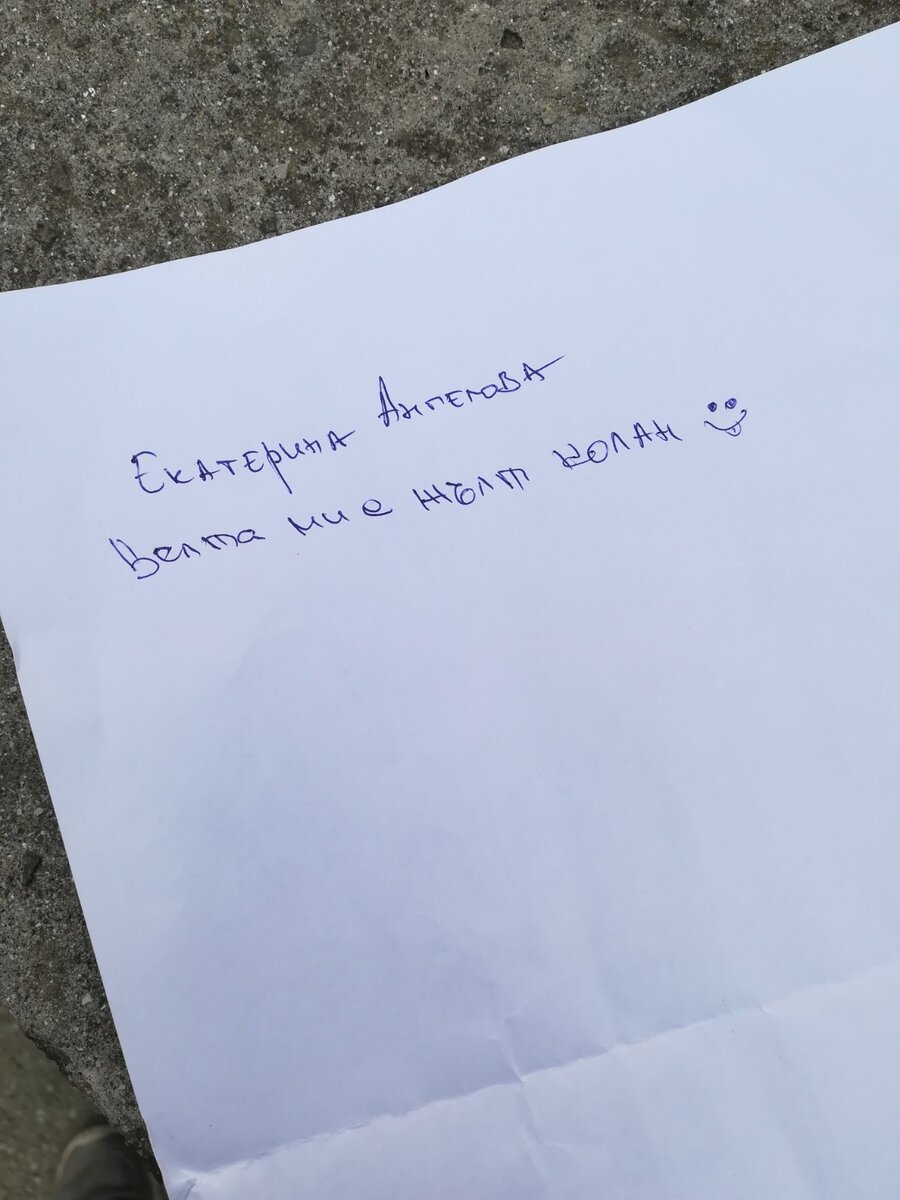 Екатерина Ангелова
Велта ми е жълт колан